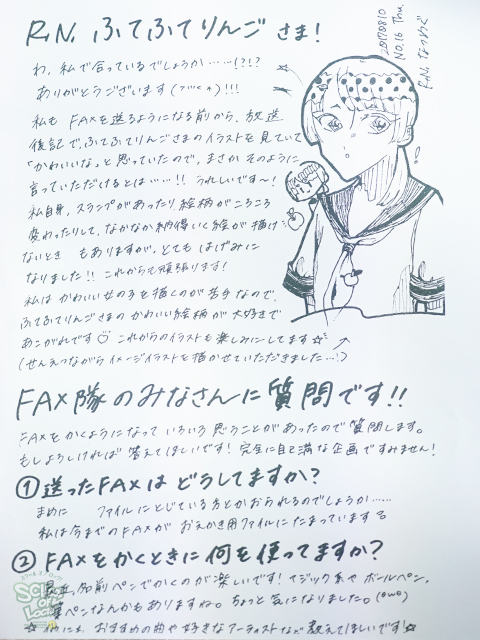 R.N. ふてふてりんご さま!
20170810
NO.16 Thu.
R.N. なつめぐ
わ、私で合っているでしょうか……(!?!?
ありがとうございます
私も FAXを送るようになる前から、放送
後記で、ふてふてりんごさまのイラストを見ていて
「かわいいな」と思っていたので、まさかそのように
言っていただけるとは……!! うれしいです~!
私自身、スランプがあったり絵柄がころころ
変わったりして、なかなか納得いく絵が描け
ないとき もありますが、とても はげみに
なりました!! これからも頑張ります!
私は かわいい女の子を描くのが苦手なので、
ふてふてりんごさまの かわいい絵柄が 大好きで
あこがれです これからのイラストも楽しみにしてます☆
(せんえつながら イメージイラストを描かせていただきました…!)
FAX隊のみなさんに質問です!!
FAXをかくようになって いろいろ 思うことがあったので 質問します。
もしよろしければ 答えてほしいです! 完全に自己満な企画ですみません!
①送ったFAXは どうしてますか?
まめに ファイルにとじている方とかおられるのでしょうか……
私は今までのFAXが おえかき用ファイルにたまっています
② FAXをかくときに何を使ってますか?
最近、名前ペンでかくのが楽しいです! マジック系や ボールペン、
筆ペンなんかもありますね。ちょっと 気になりました。
☆ 他にも、おすすめの曲や好きなアーティストなど 教えてほしいです!☆
SCHOOL OF LOCK!